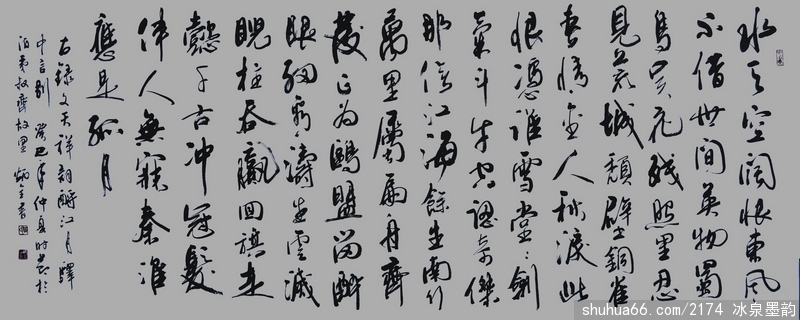 水天空阔恨東風
不借世間英物蜀
鳥吴花殘照里忍
見荒城頹壁銅雀
春情金人秋淚此
恨憑誰雪堂々劍
氣斗牛空認奇傑
那信江海餘生南行
萬里屬扁舟齊
發正為鷗盟留醉
眼細看濤生雲滅
睨柱吞嬴回旗走
懿千古冲冠髮
伴人無寐秦淮
應是孤月
右録文天祥詞酹江月驛
中言別 癸巳年仲夏時於
叔齊故里
shuhua66.com/2174 冰泉墨韵